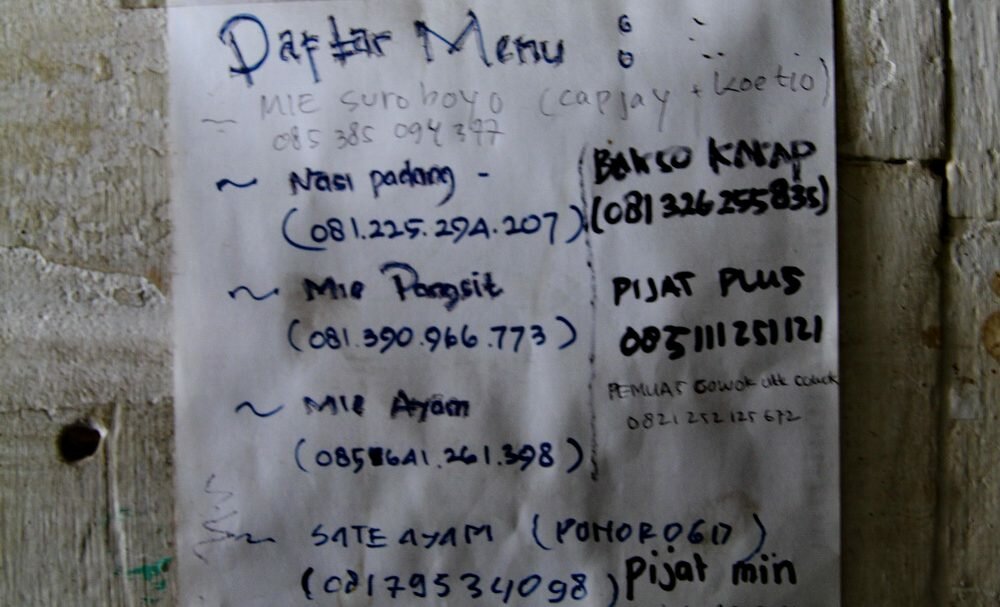 Daftar Menu :
~ MIE suroboyo (capjay + koetio)
085 385 094 397
~ Nasi padang -
(081.225.294.207)
~ Mie Pangsit
(081.390.966.773)
~ Mie Ayam
(085 641.261.398)
~ SATE AYAM (PONOROGO)
(081795534098)
BAKSO KAKAP
(081326255835)
PIJAT PLUS
085111251121
PEMUAS cowok utk
0821252125672
Pijat min